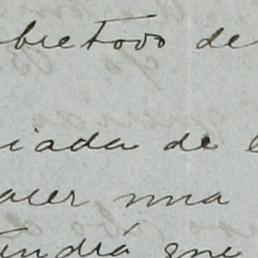 bretodo de
iada de l
acer una
tendrá que